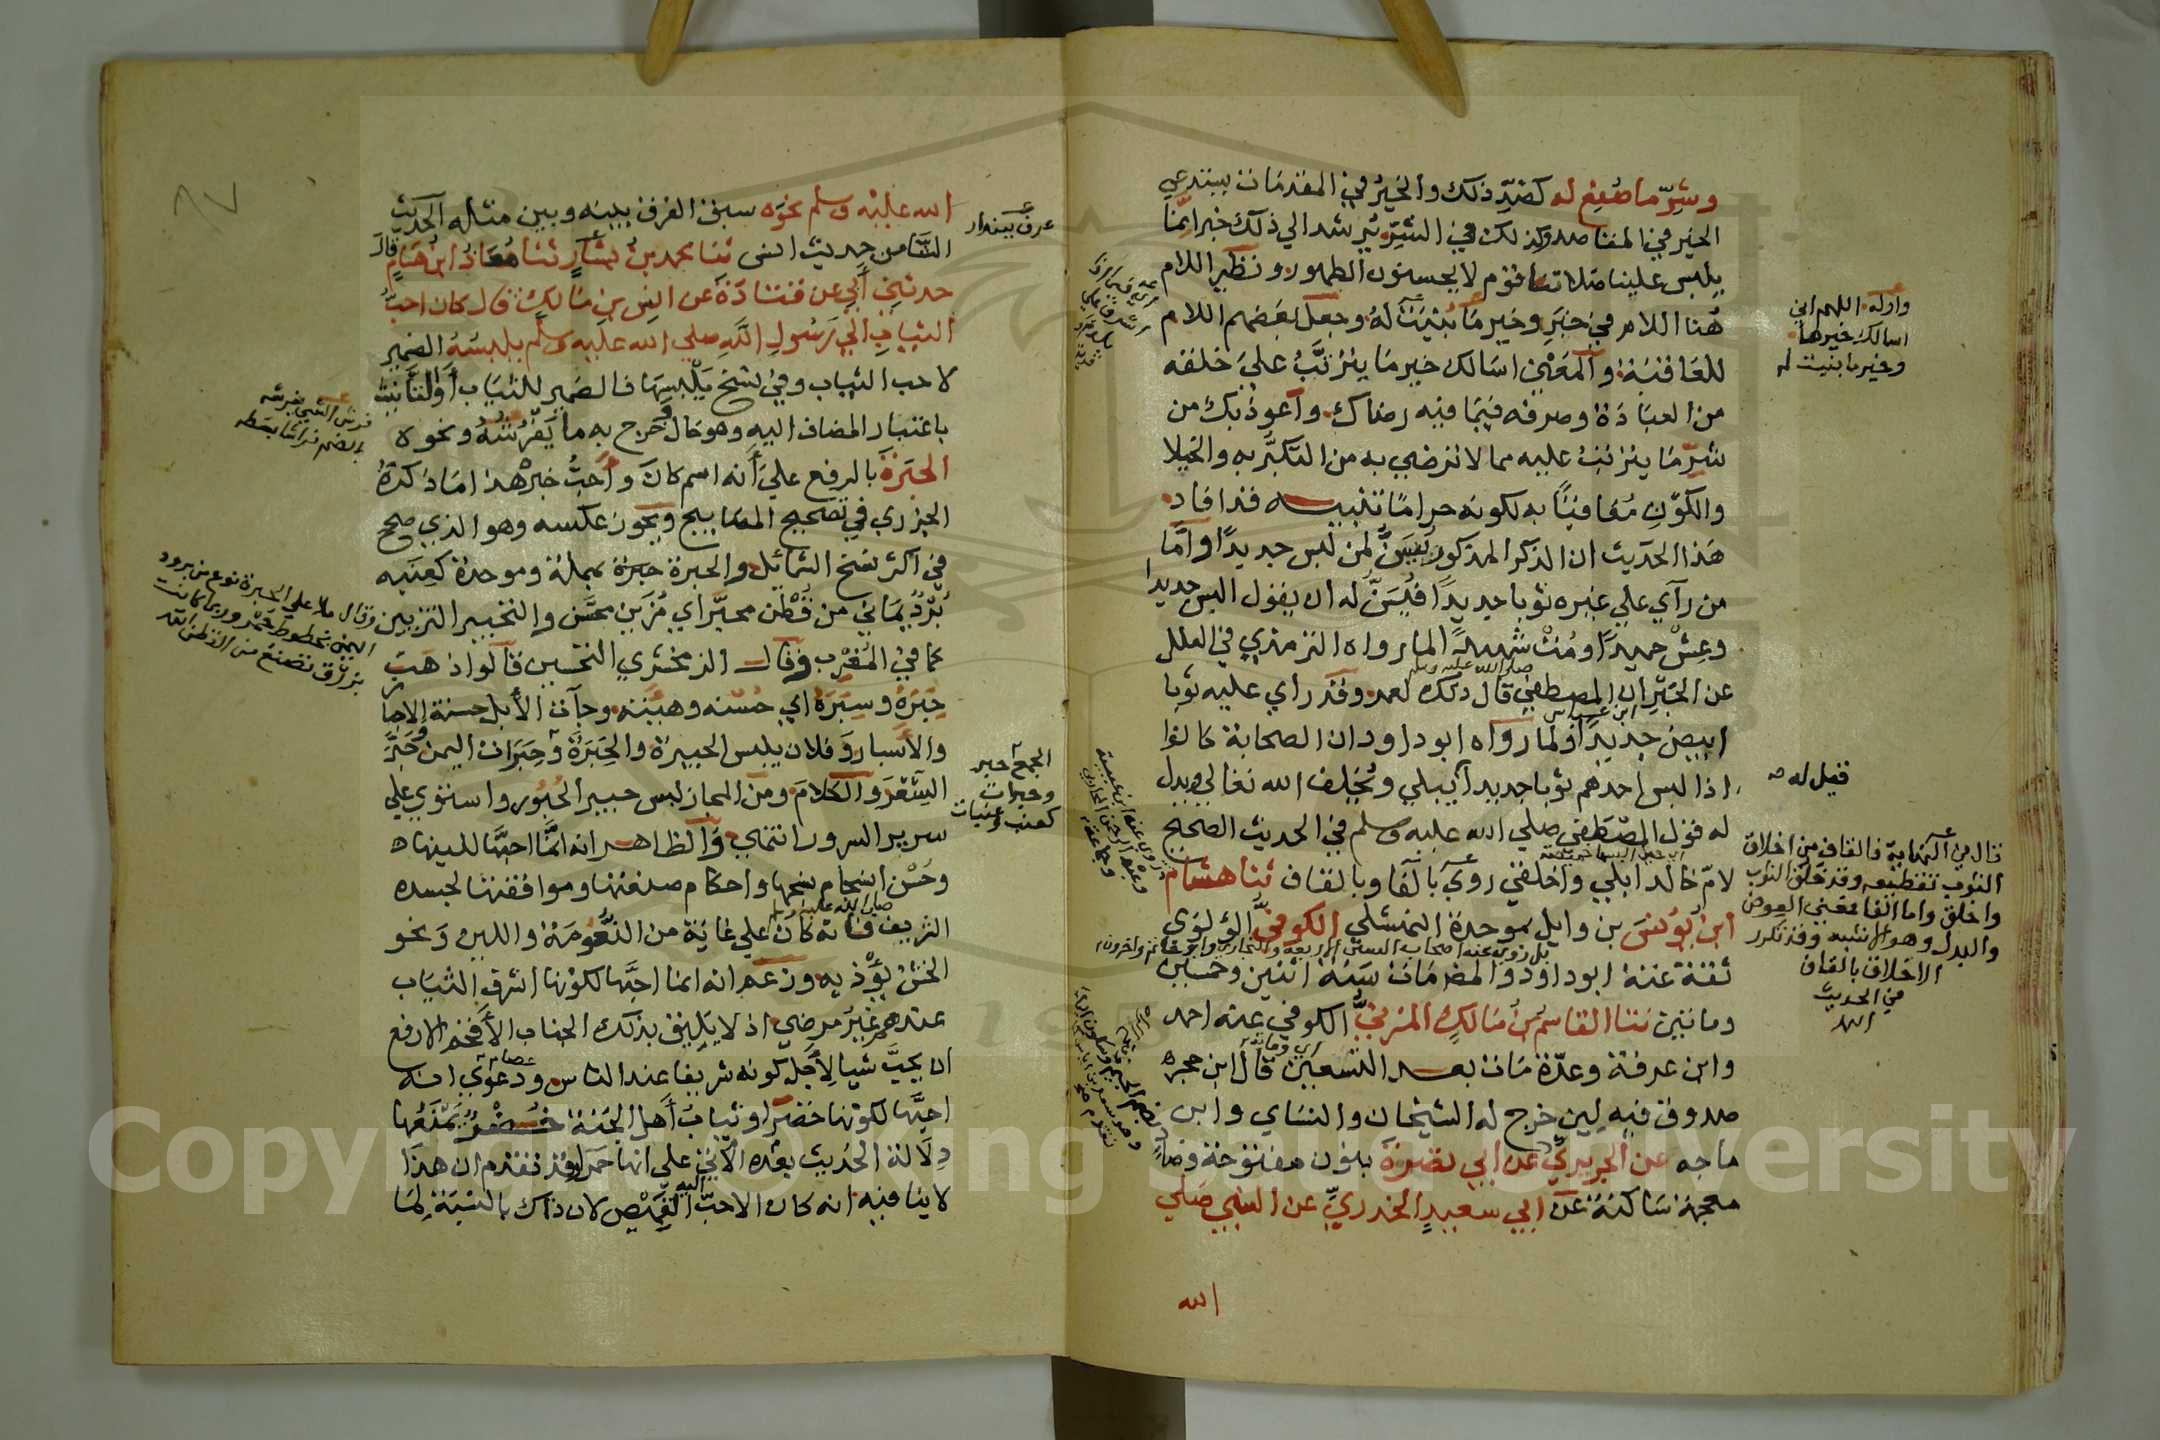 وشر ما صنع له كضد ذلك والخير في المقدمات يستدعي
الخير في المقاصد وكذلك في الشر يرشد الى ذلك خبر انما
يلبس علينا صلاتنا قوم لا يحسنون الطهور ونظير اللام
هنا اللام في خبر وخير ما بنيت له وجعل بعضهم اللام
للعاقبة والمعنى اسالك خير ما يترتب على خلقه
من العبادة وصرفه فيما فيه رضاك واعوذ بك من
شر ما يترتب عليه مما لا ترضي به من التكبر به والخيلا
والكون معاقبا به لكونه حراما تنبيه قد افاد
هذا الحديث ان الذكر المذكور يسن لمن لبس جديدا واما
من راي علي غيره ثوبا جديدا فيسن له ان يقول البس جديدا
وعش حميدا ومت شهيدا لما رواه الترمذي في العلل
عن الحبر ان المصطفى صلى الله عليه وسلم قال ذلك لعمر وقد راي عليه ثوبا
ابيض جديدا ولما رواه ابو داود ان الصحابة كانوا
اذا لبس احدهم ثوبا جديدا تبلي ويخلف الله تعالي ويدل
له قول المصطفى صلى الله عليه وسلم في الحديث الصحيح
لام خالد ابلي واخلقي روي بالفا وبالقاف ثنا هشام
ابن يونس بن وايل بموحدة النهشلي الكوفي اللؤلؤي
ثقة عنه ابو داود والمضمات سنة اثنين وخمسين
ومايتين ثنا القاسم بن مالك المزني الكوفي عنه احمد
وابن عرفة وعدة مات بعد التسعين قال ابن حجر
صدوق فيه لين خرج له الشيخان والنساي وابن
ماجه عن الجريري عن ابي نضرة بنون مفتوحة وضاد
معجمة ساكنة عن ابي سعيد الخدري عن النبي صلي
الله
وادله اللهم اني
اسالك خيرها
وخير ما بنيت له
فقيل له
قال في النهاية فالقاف من اخلاق
الثوب تقطيعه وقد خلق الثوب
واخلق واما الفا فمعنى العوض
والبدل وهو الاشبه وقد تكرر
الاخلاق بالقاف
في الحديث
الله عليه وسلم نحوه سبق الفرق بينه وبين مثله الحديث
الثامن حديث انس ثنا محمد بن بشار ثنا معاذ ابن هشام قال
حدثني ابي عن قتادة عن انس بن مالك قال كان احب
الثياب الي رسول الله صلي الله عليه وسلم يلبسه الضمير
لاحب الثياب وفي نسخ يلبسها فالضمير للثياب او التانيث
باعتبار المضاف اليه وهو حال خرج به ما يفرشه ونحوه
الحبرة بالرفع علي انه اسم كان واحب خبر هذا ما ذكره
الجزري في تصحيح المصابيح ويجوز عكسه وهو الذي صحح
في اكثر نسخ الشمائل والحبرة حبرة بمهملة وموحدة كعنبه
برد يماني من قطن محبر اي مزين محسن والتحبير التزيين
كما في المغرب وقال الزمخشري التحسين قالوا ذهب
حبره وسبره اي حسنه وهيئته وجآت الابل حسنة الاحبار
والاسبار وفلان يلبس الحبيرة والحبرة وحبرات اليمن وحبر
الشعر والكلام ومن المجاز لبس حبير الحبور واستوي علي
سرير السرور انتهي والظاهر انه انما احبها للينها
وحسن انسجام نسجها واحكام صنعتها وموافقتها لجسده
الشريف صلى الله عليه وسلم فانه كان علي غاية من النعومة واللين ونحو
الخشن يؤذيه وزعم انه انما احبها لكونها اشرف الثياب
عندهم غير مرضي اذ لا يليق بذلك الجناب الافخم الارفع
ان يحب شيا لاجل كونه شريفا عند الناس ودعوى عصام انه
احبها لكونها خضرا وثياب اهل الجنة خضر يمنعها
دلالة الحديث بعده الاتي علي انها حمرا وقد تقدم ان هذا
لا ينافيه انه كان الاحب اليه القميص لان ذاك بالنسبة لما
عرف بيندار
فرش الشي يفرشه
بالضم فراشا بسطه
وقال ملا علي الحبرة نوع من برود
اليمن بخطوط حمر وربما كانت
بزرق تصنع من القطن
الجمع حبر
وحبرات
كعنب وعنبات
٨٧
Copyright © King Saud University
1957